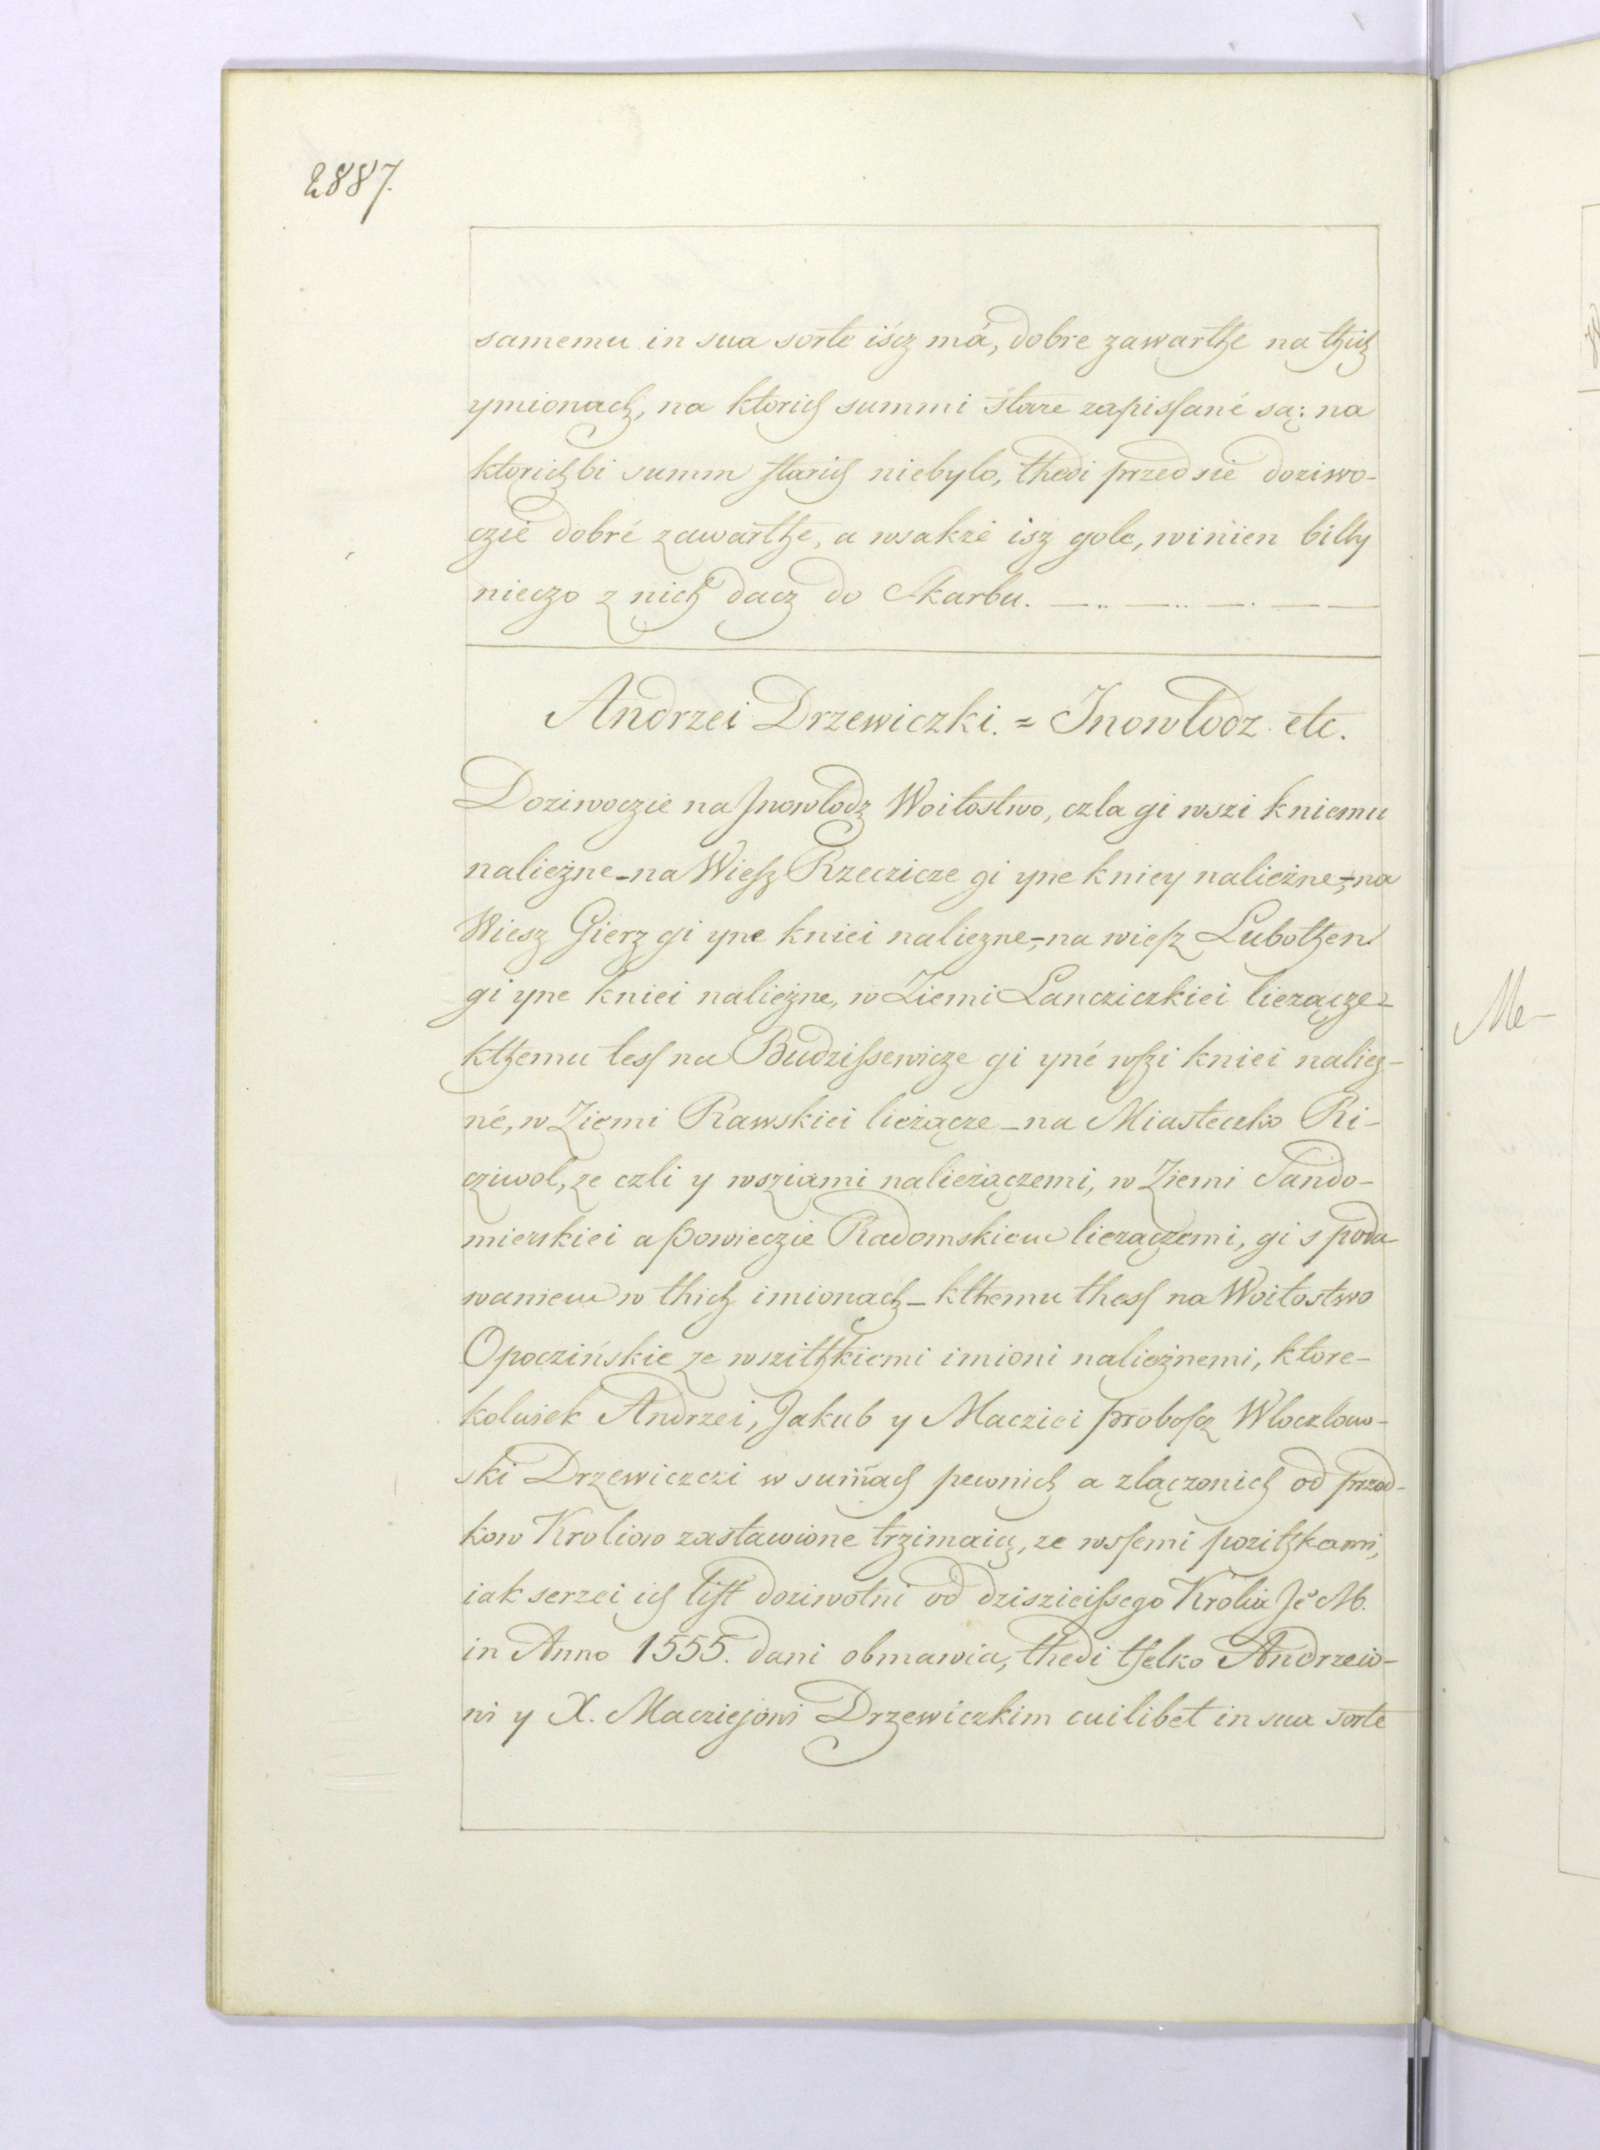 2887.
samemu in sua sorte iścz má, dobre zawarthe na thich
ymionach, na ktorich summi stare zapissané są: na
ktorichbi summ starich niebylo, thedi przedsie doziwo-
czie dobré zawarthe, a wsakże isz gole, winien bilby
nieczo z nich dacz do Skarbu. — .. — .. — . — —
Andrzei Drzewiczki. = Jnowlodz etc.
Doziwoczie na Jnowlodz Woitostwo, czla gi wszi kniemu
nalieżne - na Wiesz Rzeczicze gi yne kniey nalieżne, - na
Wiesz Gierz gi yne kniei naliezne, - na wiesz Lubothen
gi yne kniei nalieżne, w Ziemi Lancziczkiei liezącze -
kthemu tess na Budzissewicze gi yné wszi kniei naliez-
né, w Ziemi Rawskiei lieżącze - na Miasteczko Ri-
cziwol, ze czli y wsziami nalieżączemi, w Ziemi Sando-
mierskiei a Powieczie Radomskiem liezączemi, gi s poda
waniem w thich imionach - kthemu thess na Woitostwo
Opoczińskie ze wszitkiemi imioni nalieżnemi, ktore-
kolwiek Andrzei, Jakub y Macziei probosz Wloczlow-
ski Drzewiczczi w sum̃ach pewnich a zlączonich od przod-
kow Kroliow zastawione trzimaią, ze wssemi pozitkami,
iak serzei ich list doziwotni od dziszieissego Krolia Je M.
in Anno 1555. dani obmawia, thedi tselko Andrzeio-
wi y X. Macziejowi Drzewiczkim cuilibet in sua sorte
Me-